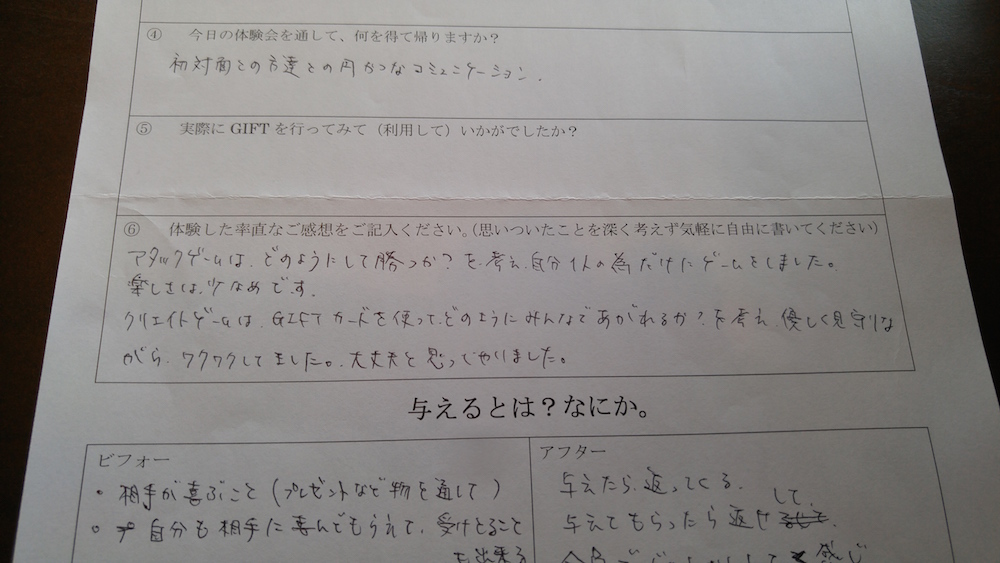 ④ 今日の体験会を通して、何を得て帰りますか？
初対面との方達との円かつなコミュニケーション.
⑤ 実際に GIFT を行ってみて（利用して）いかがでしたか？
⑥ 体験した率直なご感想をご記入ください。（思いついたことを深く考えず気軽に自由に書いてください）
アタックゲームは、どのようにして勝つか？を、考え、自分1人の為だけにゲームをしました。
楽しさは、少なめです.
クリエイトゲームは、GIFTカードを使って、どのようにみんなであがれるか？を考え、優しく見守りな
がら、ワクワクしてました。大丈夫と思ってやりました。
与えるとは？なにか。
ビフォー
・相手が喜ぶこと（プレゼントなど物を通して）
・自分も相手に喜んでもらえて、受けとること
を出来る
アフター
与えたら、返ってくる.
して.
与えてもらったら返せ
感じ